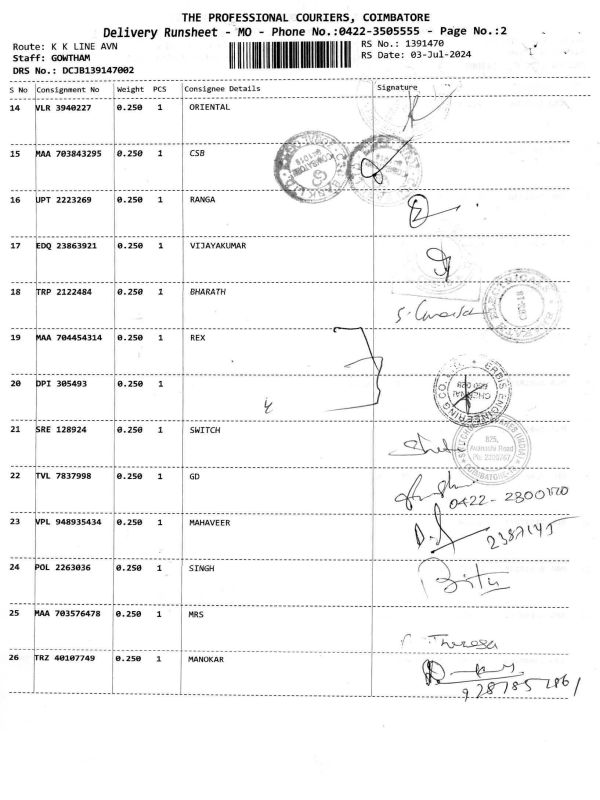 THE PROFESSIONAL COURIERS, COIMBATORE
Delivery Runsheet - MO - Phone No.:0422-3505555 - Page No.:2
Route: K K LINE AVN
RS No.: 1391470
Staff: GOWTHAM
RS Date: 03-Jul-2024
DRS No.: DCJB139147002
S No Consignment No Weight PCS Consignee Details Signature
14 VLR 3940227 0.250 1 ORIENTAL
15 MAA 703843295 0.250 1 CSB
16 UPT 2223269 0.250 1 RANGA
17 EDQ 23863921 0.250 1 VIJAYAKUMAR
18 TRP 2122484 0.250 1 BHARATH
19 MAA 704454314 0.250 1 REX
20 DPI 305493 0.250 1
21 SRE 128924 0.250 1 SWITCH
825,
Avanashi Road
22 TVL 7837998 0.250 1 GD
0422-
23 VPL 948935434 0.250 1 MAHAVEER
24 POL 2263036 0.250 1 SINGH
25 MAA 703576478 0.250 1 MRS
Theresa
26 TRZ 40107749 0.250 1 MANOKAR